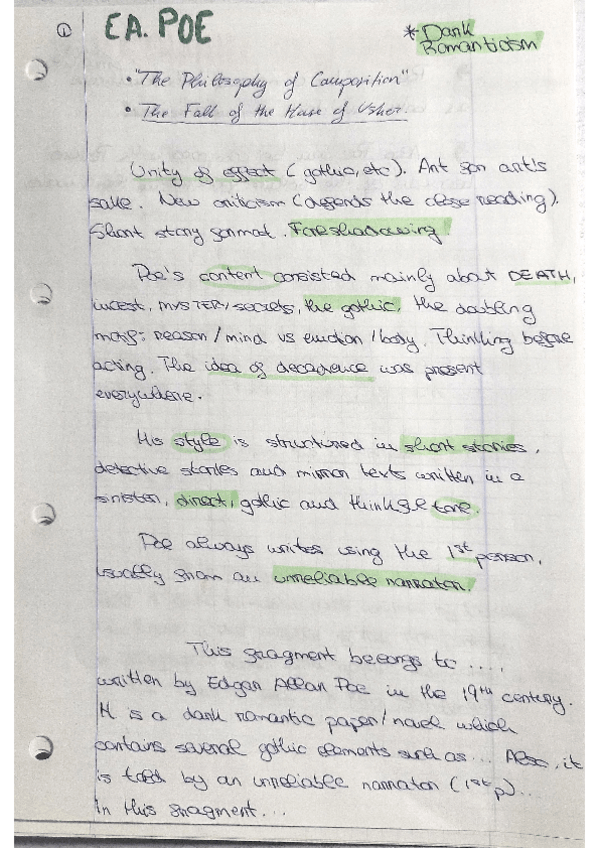 ① E.A. POE
* Dark
Romanticism
• "The Philosophy of Composition"
• The Fall of the House of Usher.
Unity of effect (gothic, etc). Art for art's
sake. New criticism (defends the close reading).
Short story format. Foreshadowing
Poe's content consisted mainly about DEATH,
incest, MYSTERY/secrets, the gothic, the doubling
motif: reason/mind vs emotion/body. Thinking before
acting. The idea of decadence was present
everywhere.
His style is structured in short stories,
detective stories and mirror texts written in a
sinister, direct, gothic and tone.
Poe always writes using the 1st person,
usually from an unreliable narrator.
This fragment belongs to ....,
written by Edgar Allan Poe in the 19th century.
It is a dark romantic paper/novel which
contains several gothic elements such as... Also, it
is told by an unreliable narrator (1st p)...
In this fragment...